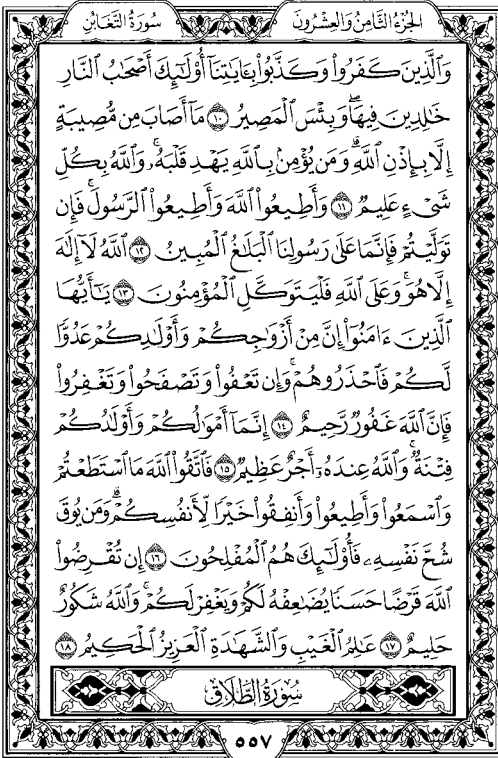 سُورَةُ التَّغَابُنِ
الجُزْءُ الثَّامِنُ وَالعِشْرُونَ
وَٱلَّذِينَ كَفَرُوا۟ وَكَذَّبُوا۟ بِـَٔايَٰتِنَآ أُو۟لَٰٓئِكَ أَصْحَٰبُ ٱلنَّارِ
خَٰلِدِينَ فِيهَا ۖ وَبِئْسَ ٱلْمَصِيرُ ۝١٠ مَآ أَصَابَ مِن مُّصِيبَةٍ
إِلَّا بِإِذْنِ ٱللَّهِ ۗ وَمَن يُؤْمِنۢ بِٱللَّهِ يَهْدِ قَلْبَهُۥ ۚ وَٱللَّهُ بِكُلِّ
شَىْءٍ عَلِيمٌ ۝١١ وَأَطِيعُوا۟ ٱللَّهَ وَأَطِيعُوا۟ ٱلرَّسُولَ ۚ فَإِن
تَوَلَّيْتُمْ فَإِنَّمَا عَلَىٰ رَسُولِنَا ٱلْبَلَٰغُ ٱلْمُبِينُ ۝١٢ ٱللَّهُ لَآ إِلَٰهَ
إِلَّا هُوَ ۚ وَعَلَى ٱللَّهِ فَلْيَتَوَكَّلِ ٱلْمُؤْمِنُونَ ۝١٣ يَٰٓأَيُّهَا
ٱلَّذِينَ ءَامَنُوٓا۟ إِنَّ مِنْ أَزْوَٰجِكُمْ وَأَوْلَٰدِكُمْ عَدُوًّا
لَّكُمْ فَٱحْذَرُوهُمْ ۚ وَإِن تَعْفُوا۟ وَتَصْفَحُوا۟ وَتَغْفِرُوا۟
فَإِنَّ ٱللَّهَ غَفُورٌ رَّحِيمٌ ۝١٤ إِنَّمَآ أَمْوَٰلُكُمْ وَأَوْلَٰدُكُمْ
فِتْنَةٌ ۚ وَٱللَّهُ عِندَهُۥٓ أَجْرٌ عَظِيمٌ ۝١٥ فَٱتَّقُوا۟ ٱللَّهَ مَا ٱسْتَطَعْتُمْ
وَٱسْمَعُوا۟ وَأَطِيعُوا۟ وَأَنفِقُوا۟ خَيْرًا لِّأَنفُسِكُمْ ۗ وَمَن يُوقَ
شُحَّ نَفْسِهِۦ فَأُو۟لَٰٓئِكَ هُمُ ٱلْمُفْلِحُونَ ۝١٦ إِن تُقْرِضُوا۟
ٱللَّهَ قَرْضًا حَسَنًا يُضَٰعِفْهُ لَكُمْ وَيَغْفِرْ لَكُمْ ۚ وَٱللَّهُ شَكُورٌ
حَلِيمٌ ۝١٧ عَٰلِمُ ٱلْغَيْبِ وَٱلشَّهَٰدَةِ ٱلْعَزِيزُ ٱلْحَكِيمُ ۝١٨
سُورَةُ الطَّلَاقِ
٥٥٧